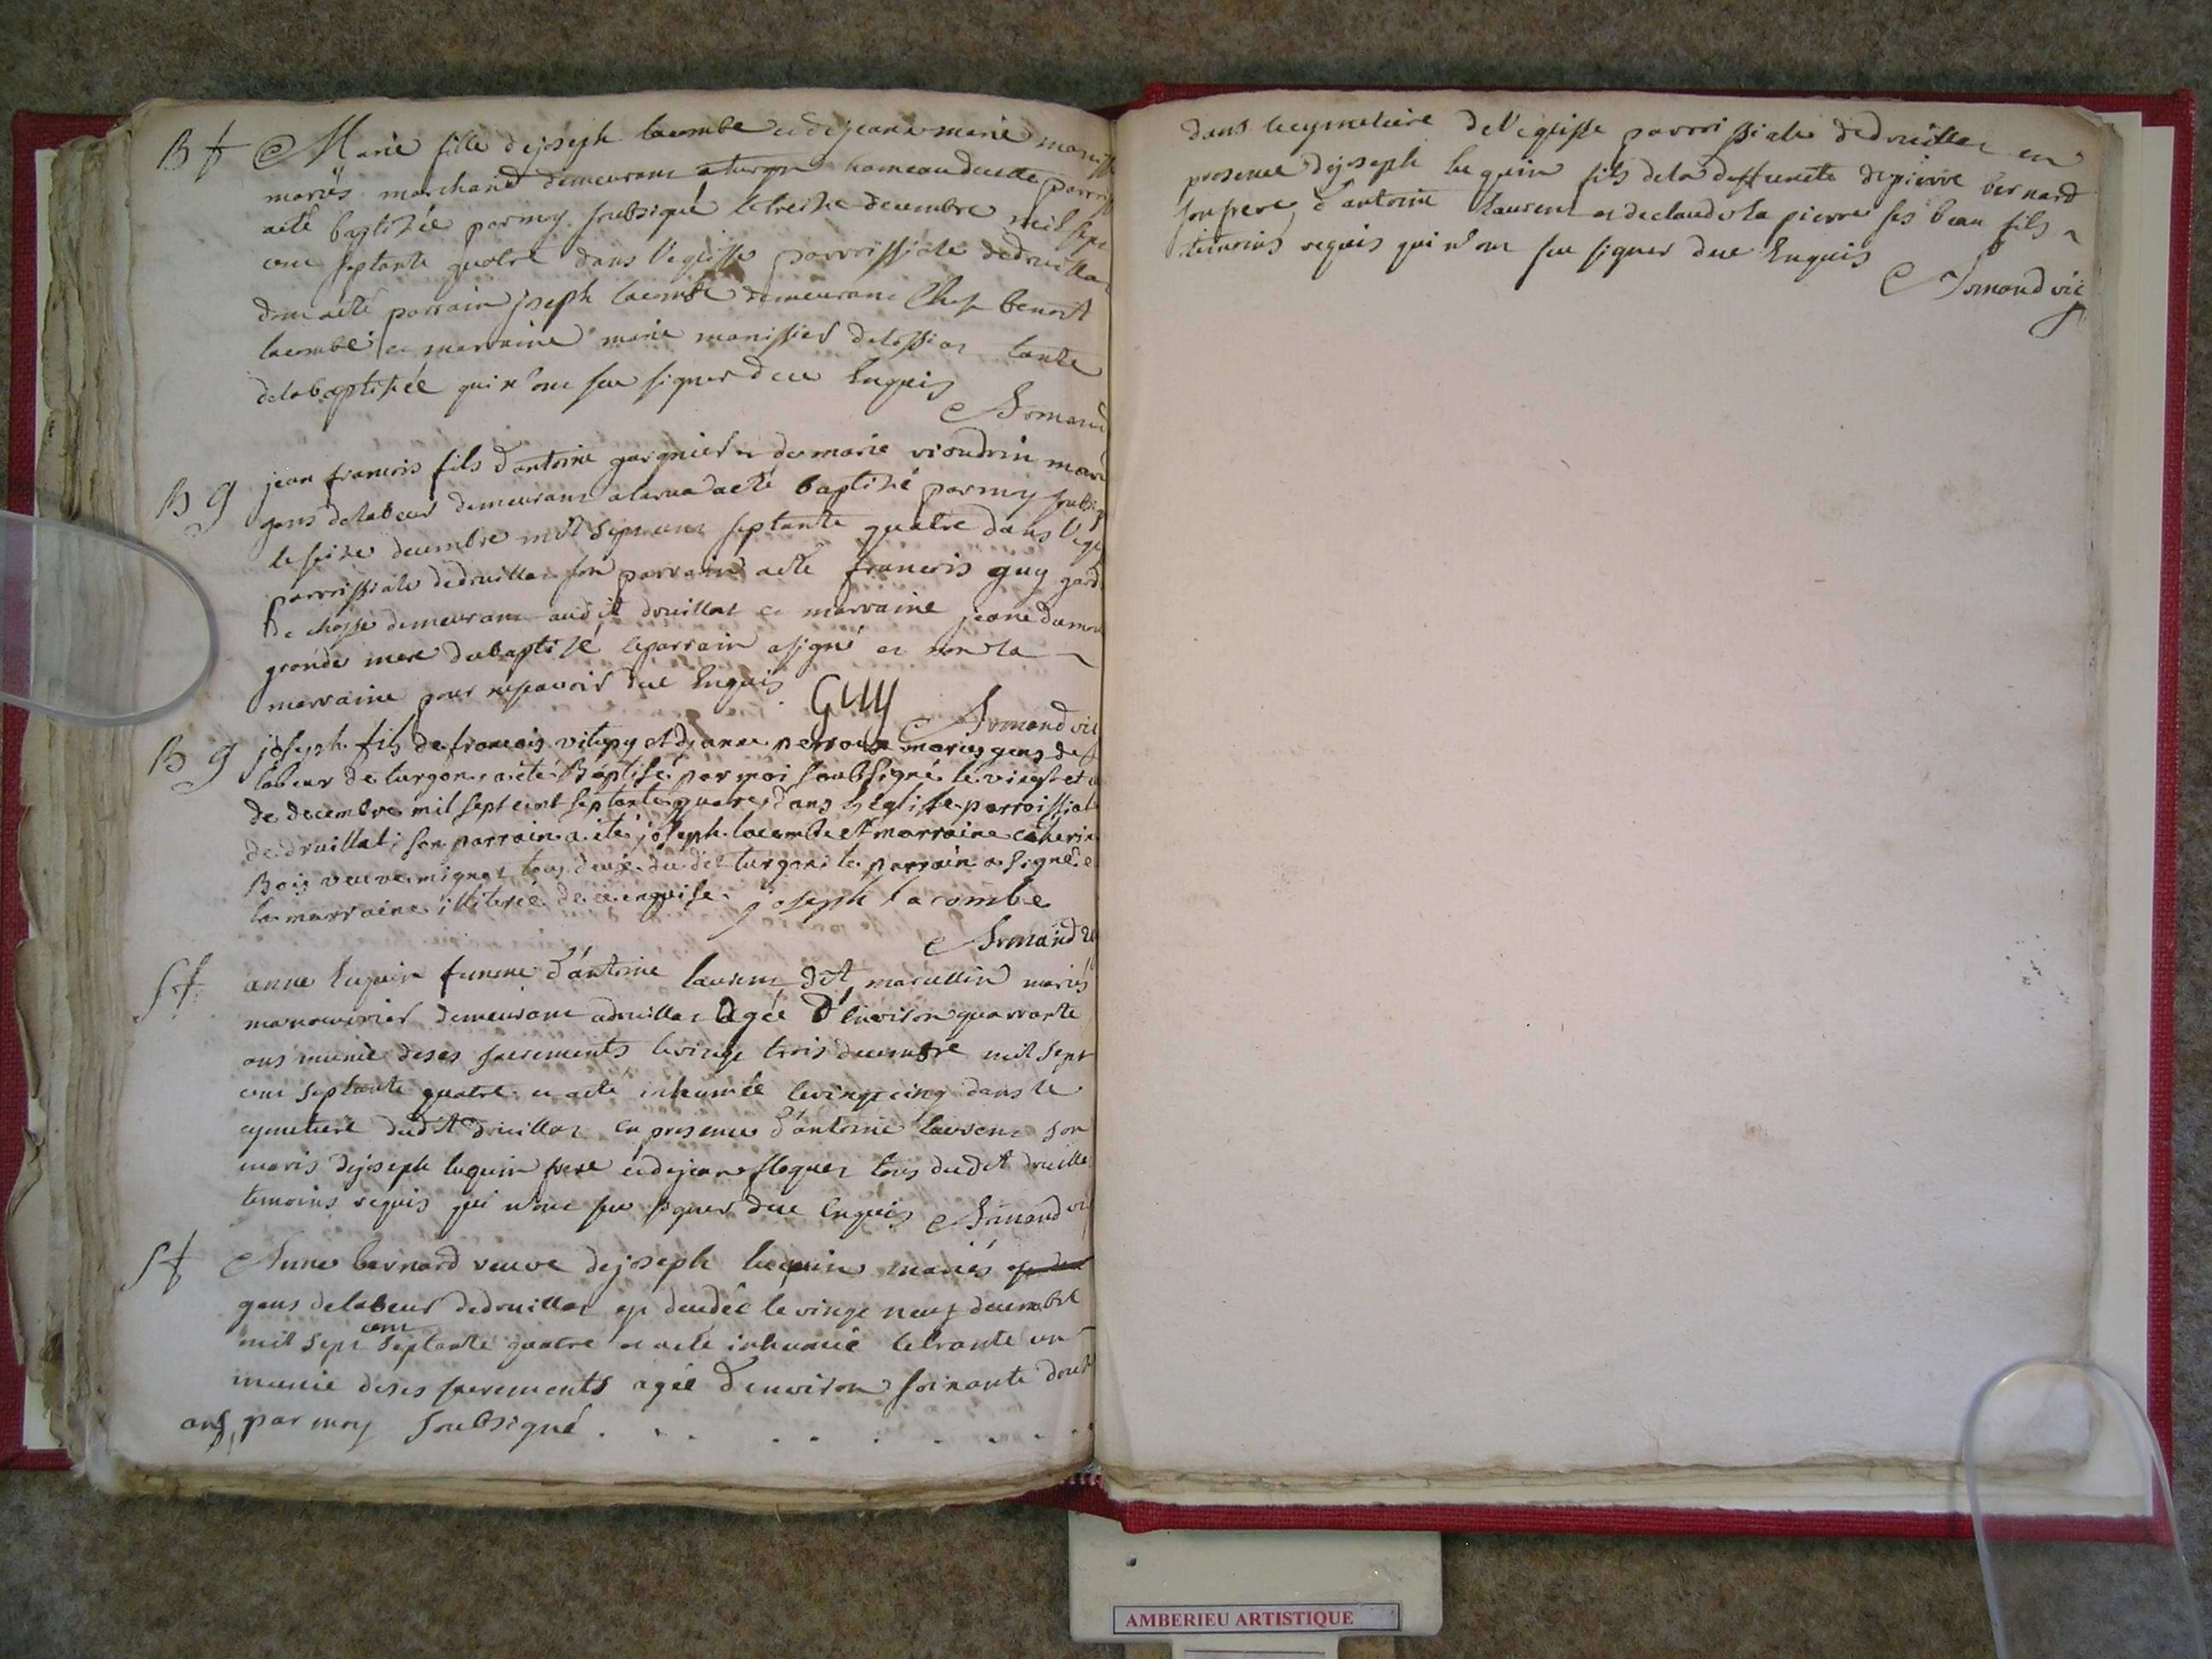 B f Marie fille de joseph lacombe et de jeane marie
mariés marchand demeurant a turgon hameau de cette
a eté baptizée par moy soubsigné le treize decembre mil sept
cent septante quatre dans l'eglisse parroissiale de druillat
dont a eté parrain joseph lacombe demeurant chez benoit
lacombe et marraine marie manissier de tossiat tante
de la baptisée qui n'ont seu signer de ce enquis
Armand
B g jean francois fils d'antoine gargnier et de marie vioudrin
gens de labeur demeurant a larua a eté baptizé par moy
le seize decembre mil sept cent septante quatre dans
parroissiale de druillat son parrain a eté francois guy
de chasse demeurant audit druillat et marraine jeane
grande mere du baptizé le parrain a signé et non la
marraine pour ne scavoir de ce enquis GUY
Armand vic
B g joseph fils de francois vilepy et de anne perroux mariés gens de
labeur de turgon, a eté Baptisé par moi soubsigné le vingt et
de decembre mil sept cent septante quatre, dans l'eglisse parroissial
de druillat; son parrain a eté joseph lacombe et marraine
Bois veuve mignot tous deux du dit turgon; le parrain a signé
la marraine illiterée de ce enquise. joseph lacombe
Armand
S f anne luquin femme d'antoine laurent dit marcellin mariés
manouvrier demeurant a druillat agée d'environ quarrante
ans munie de ses sacrements le vingt trois decembre mil sept
cent septante quatre et a eté inhumée le vingt cinq dans le
cymetiere dudit druillat en presence d'antoine laurent son
maris de joseph luquin frere et de jean floquet tous dudit
temoins requis qui n'ont seu signer de ce enquis Armand
S f Anne bernard veuve de joseph luquin mariés
gens de labeur de druillat est decedée le vingt neuf decembre
cent
mil sept septante quatre et a eté inhumée le trante un
munie de ses sacrements agée d'environ soixante douze
ans, par moy soubsigné . . . . . . . . .
dans le cymetiere de l'eglisse parroissiale de druillat en
presence de joseph luquin fils de la deffuncte de pierre bernard
son frere, d'antoine laurent et de claude la pierre ses beau fils
temoins requis qui n'ont seu signer de ce enquis
Armand vic
AMBERIEU ARTISTIQUE